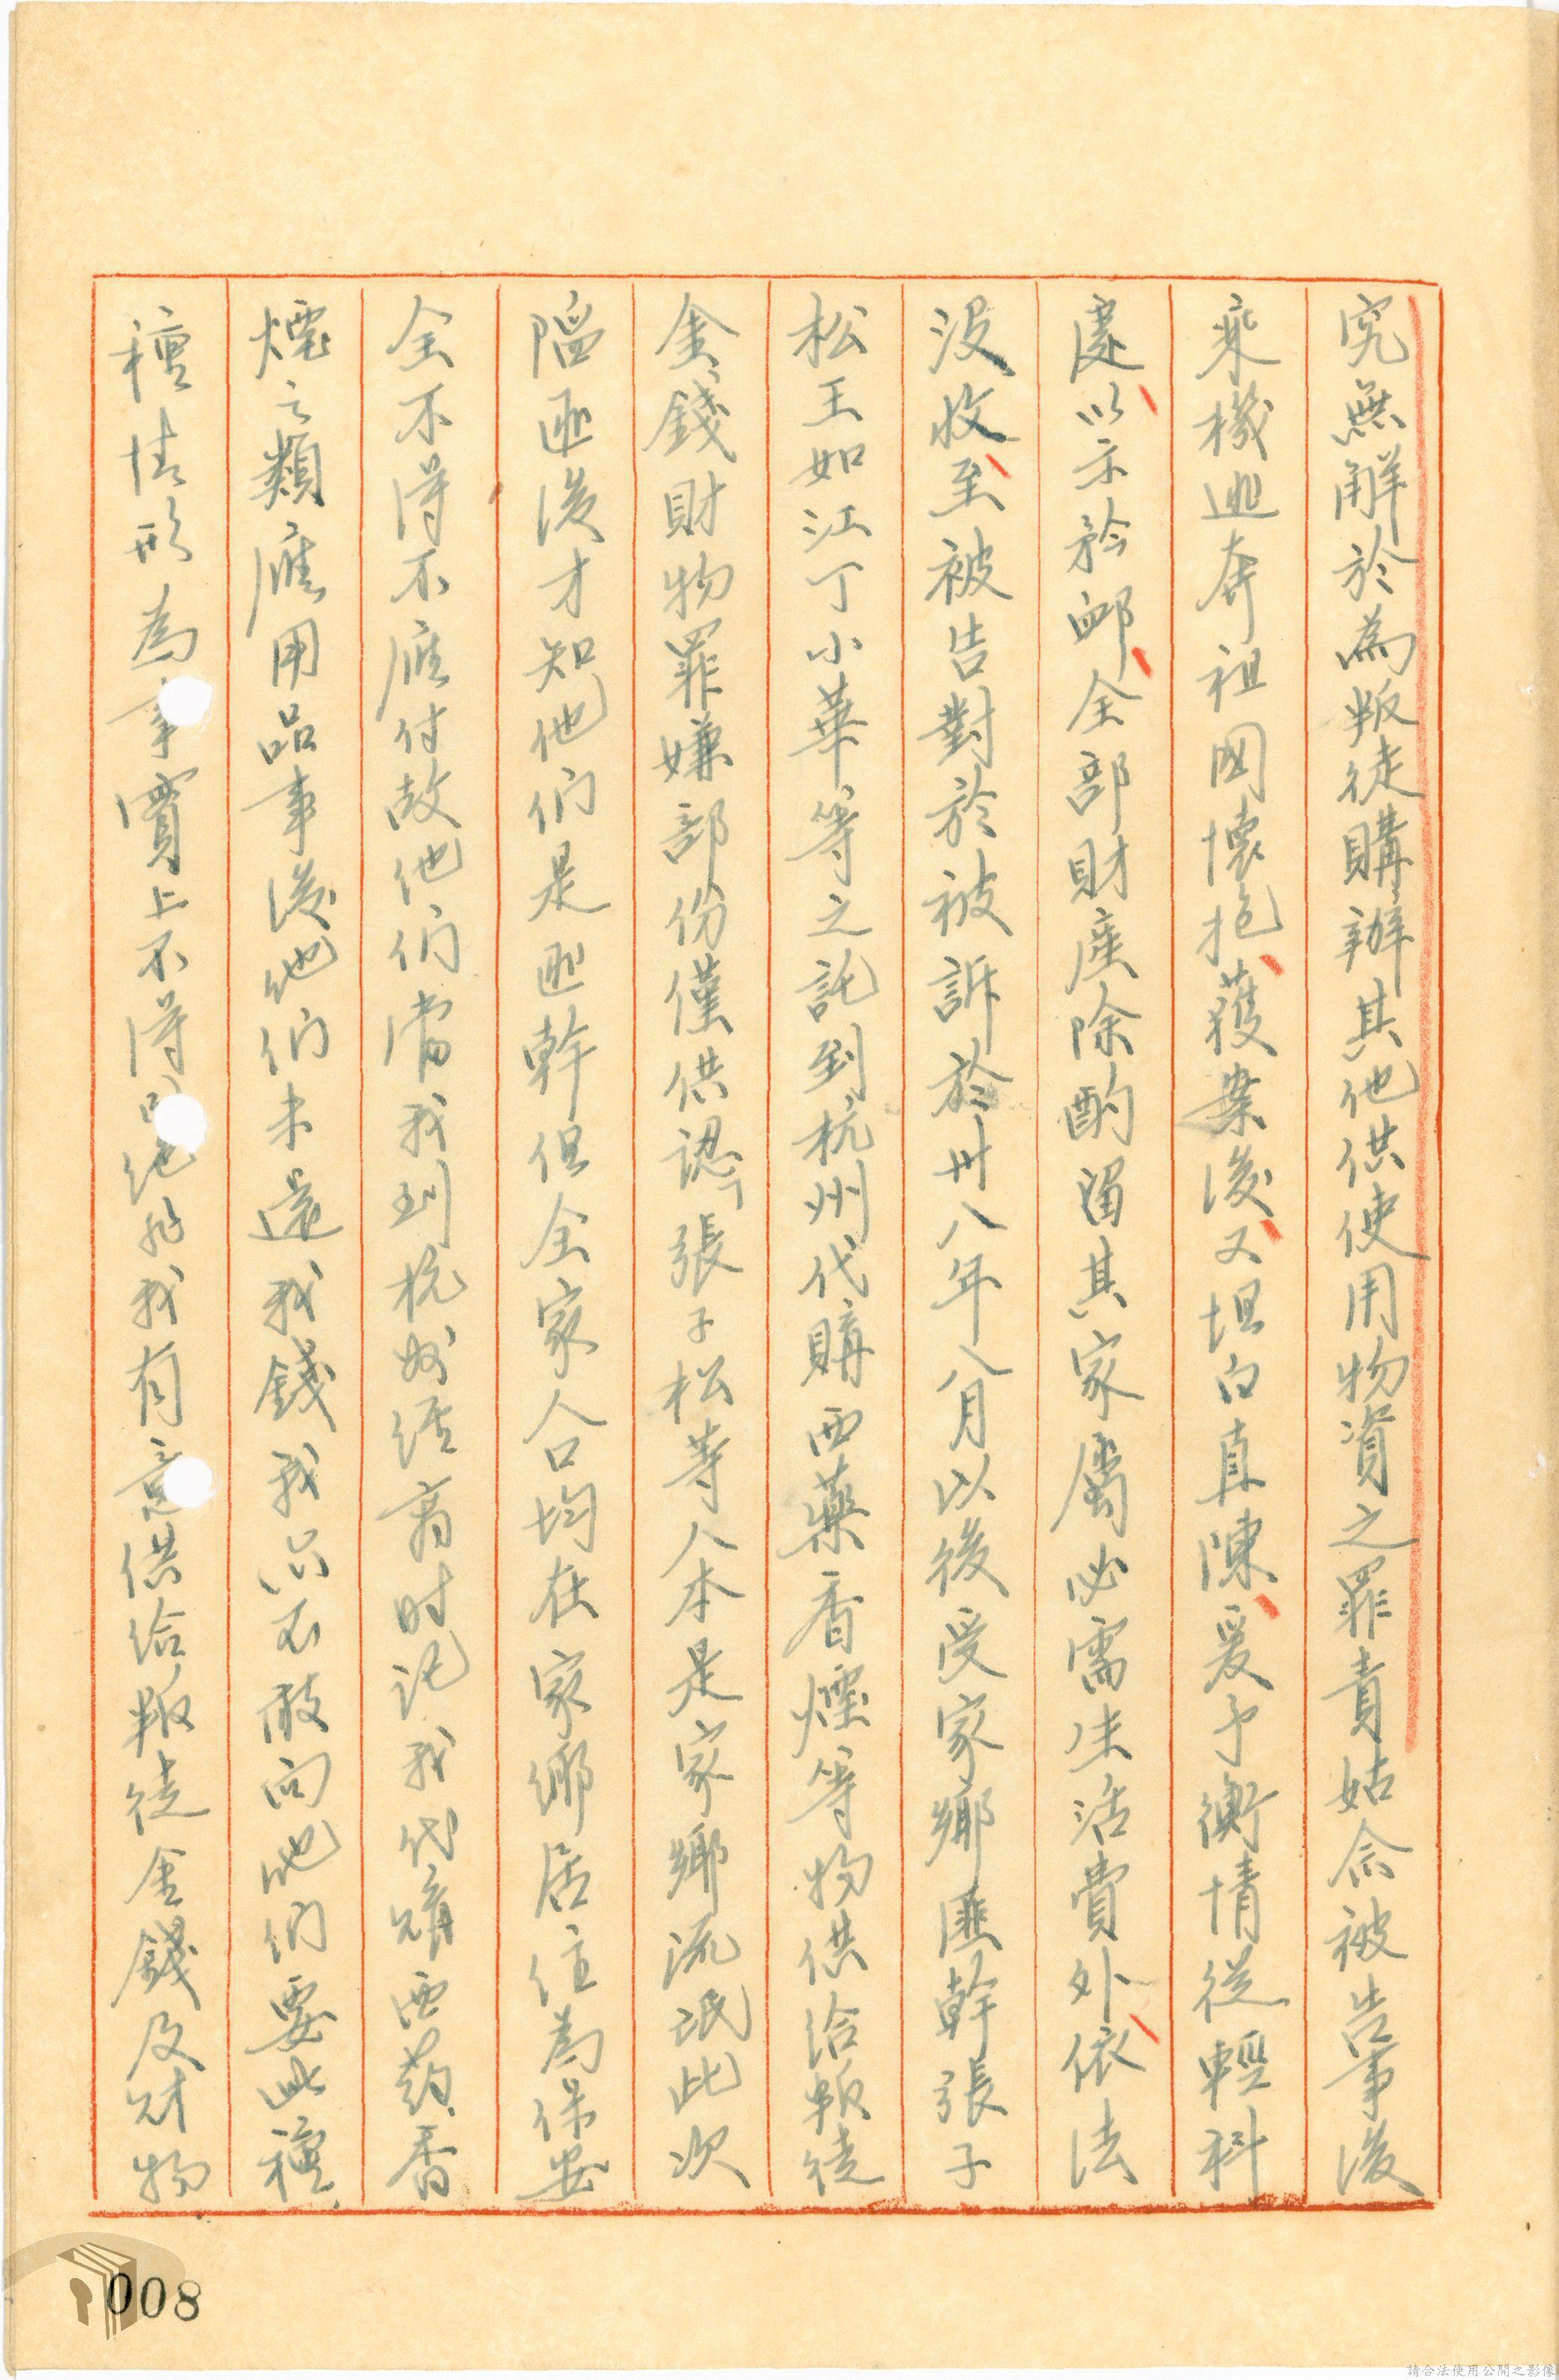 究無解於為叛徒購辦其他供使用物資之罪責姑念被告事後
乘機逃奔祖國懷抱獲案後又坦白真陳爰予衡情從輕科
處以示矜卹全部財產除酌留其家屬必需生活費外依法
沒收至被告對於被訴於卅八年八月以後受家鄉匪幹張子
松王如江丁小華等之託到杭州代購西藥香煙等物供給叛徒
金錢財物罪嫌部份僅供認「張子松等人本是家鄉流氓此次
陷匪後才知他們是匪幹但全家人口均在家鄉居住為保安
全不得不應付故他們當我到杭州經商時託我代購西药香
煙之類應用品事後他們未還我錢我亦不敢向他們要此種
種情形為事實上不得已絕非我有意供給叛徒金錢及財物
008
請合法使用公開之影像